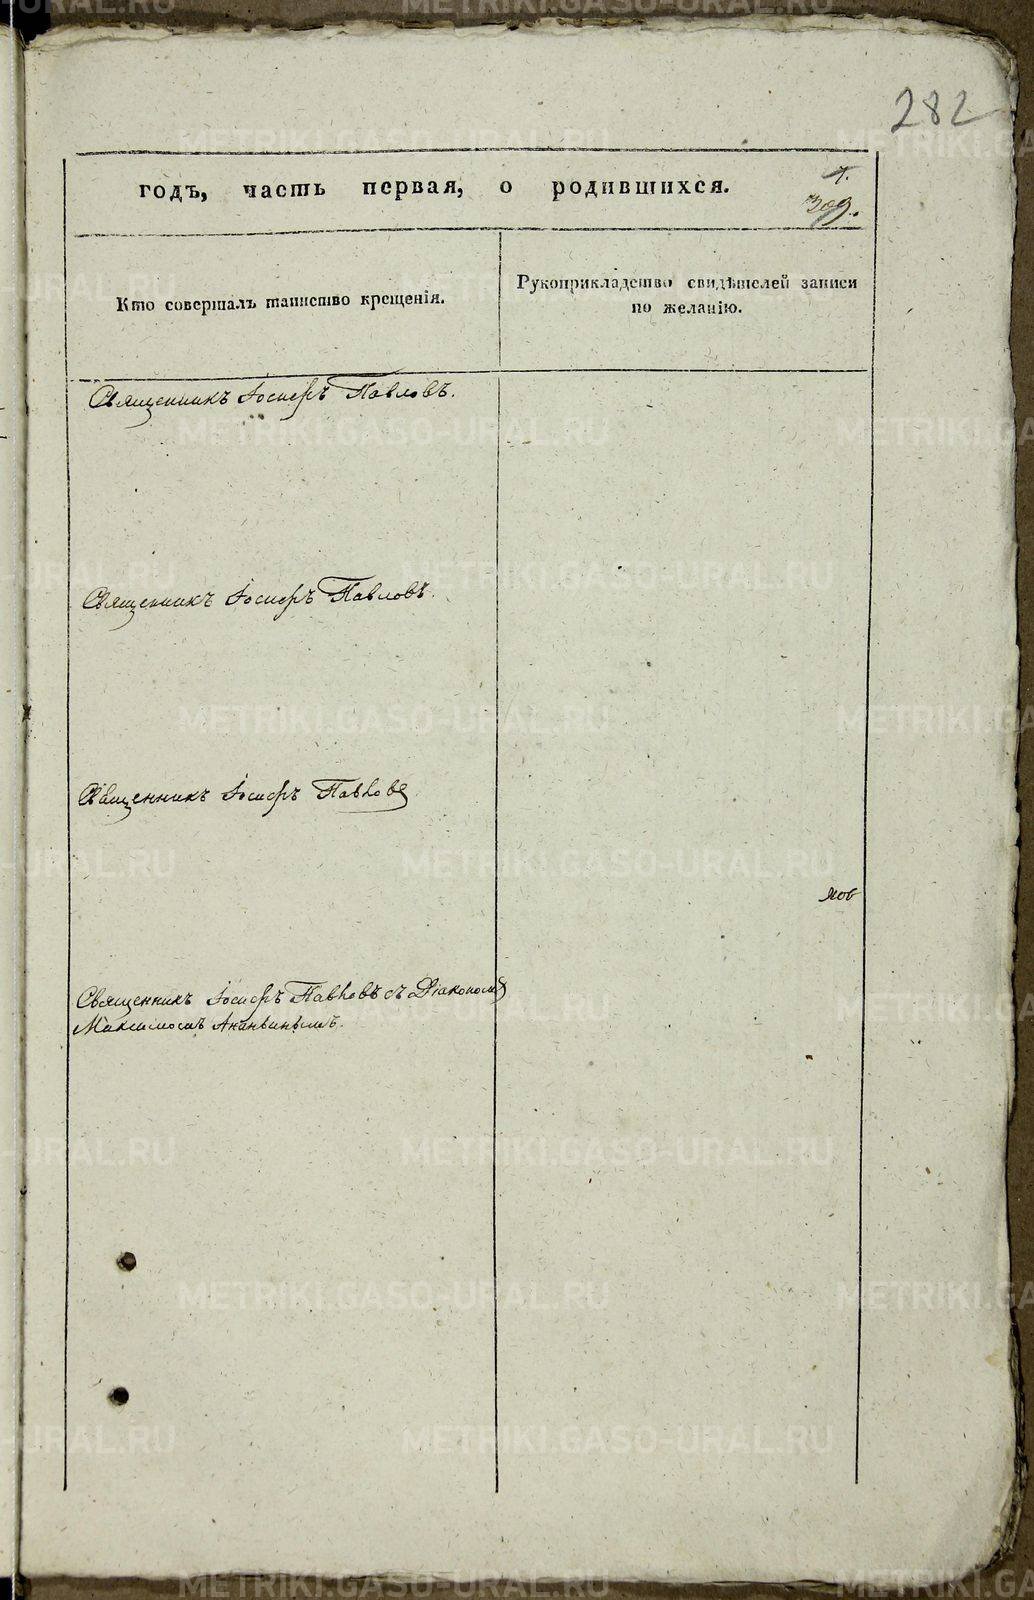 282
годъ, часть первая, о родившихся.
7.
309.
Кто совершалъ таинство крещенія.
Рукоприкладство свидѣтелей записи
по желанію.
Священникъ Іосифъ Павловъ.
Священникъ Іосифъ Павловъ.
Священникъ Іосифъ Павловъ
ков
Священникъ Іосифъ Павловъ съ Діакономъ
Максимомъ Ананьинымъ.
METRIKI.GASO-URAL.RU